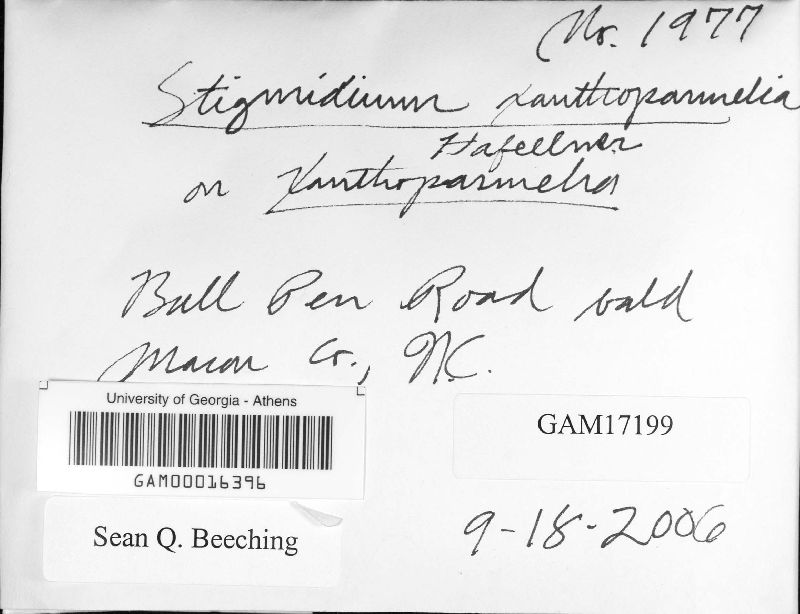 No. 1977
Stigmidium xanthoparmelia
Hafellner
on Xanthoparmelia
Bull Pen Road bald
Macon Co., N.C.
University of Georgia - Athens
GAM00016396
GAM17199
Sean Q. Beeching
9-18-2006